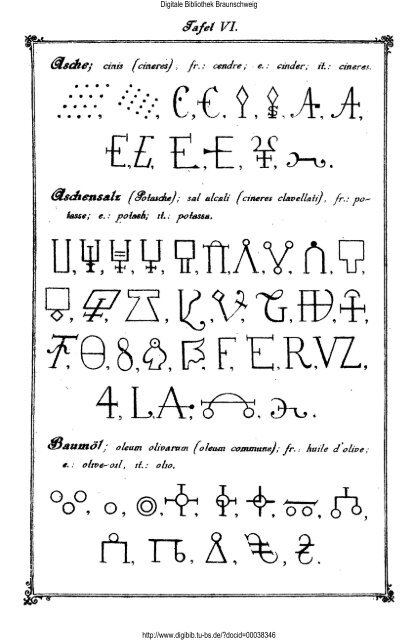 Digitale Bibliothek Braunschweig
Tafel VI.
Asche; cinis (cineres), fr.: cendre; e.: cinder; it.: cineres.
Aschensalz (Potasche); sal alcali (cineres clavellati), fr.: po-
tasse; e.: potash; it.: potassa.
Baumöl; oleum olivarum (oleum commune); fr.: huile d'olive;
e.: olive-oil, it.: olio.
http://www.digibib.tu-bs.de/?docid=00038346